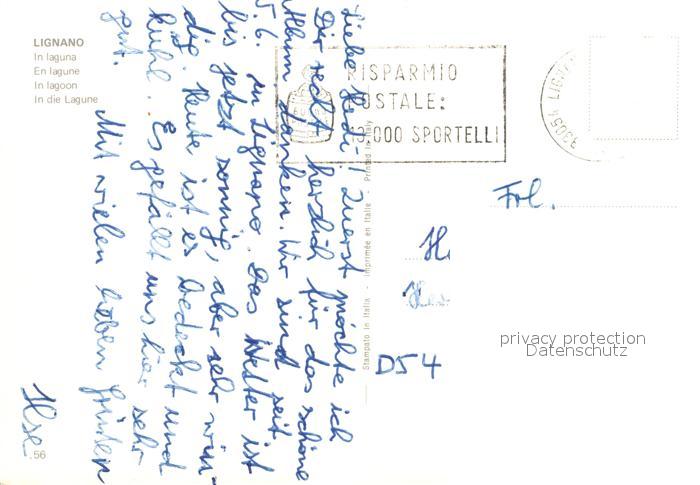 LIGNANO
In laguna
En lagune
In lagoon
In die Lagune
Liebe Heidi! Zuerst möchte ich
Dir recht herzlich für das schöne
Album danken. Wir sind seit
5.6. in Lignano. Das Wetter ist
bis jetzt sonnig, aber sehr win-
dig. Heute ist es bedeckt und
kühl. Es gefällt uns hier sehr
gut.
Mit vielen lieben Grüßen
Ilse
.56
Stampato in Italia - Imprimée en Italie - Printed in Italy
RISPARMIO
POSTALE:
13.000 SPORTELLI
33054 LIGN
Frl.
H
H
D54
privacy protection
Datenschutz